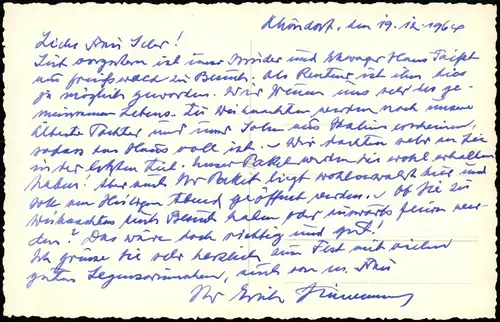 Rhöndorf, den 19.12.1964
Liebe Frau Seler!
Seit vorgestern ist unser Bruder und Schwager Hans
aus Greifswald zu Besuch. Als Rentner ist ihm dies
ja möglich geworden. Wir freuen uns sehr des ge-
meinsamen Lebens. Zu Weihnachten werden noch unsere
älteste Tochter und unser Sohn aus Italien erscheinen,
sodass das Haus voll ist. – Wir dachten sehr an Sie
in der letzten Zeit. Unser Paket werden Sie wohl erhalten
haben. Aber auch Ihr Paket liegt wohlverwahrt hier und
soll am Heiligen Abend geöffnet werden. – Ob Sie zu
Weihnachten auch Besuch haben oder auswärts feiern wer-
den? Das wäre doch richtig und gut!
Ich grüsse Sie sehr herzlich zum Fest mit vielen
guten Segenswünschen, auch von m. Frau
Ihr Erich